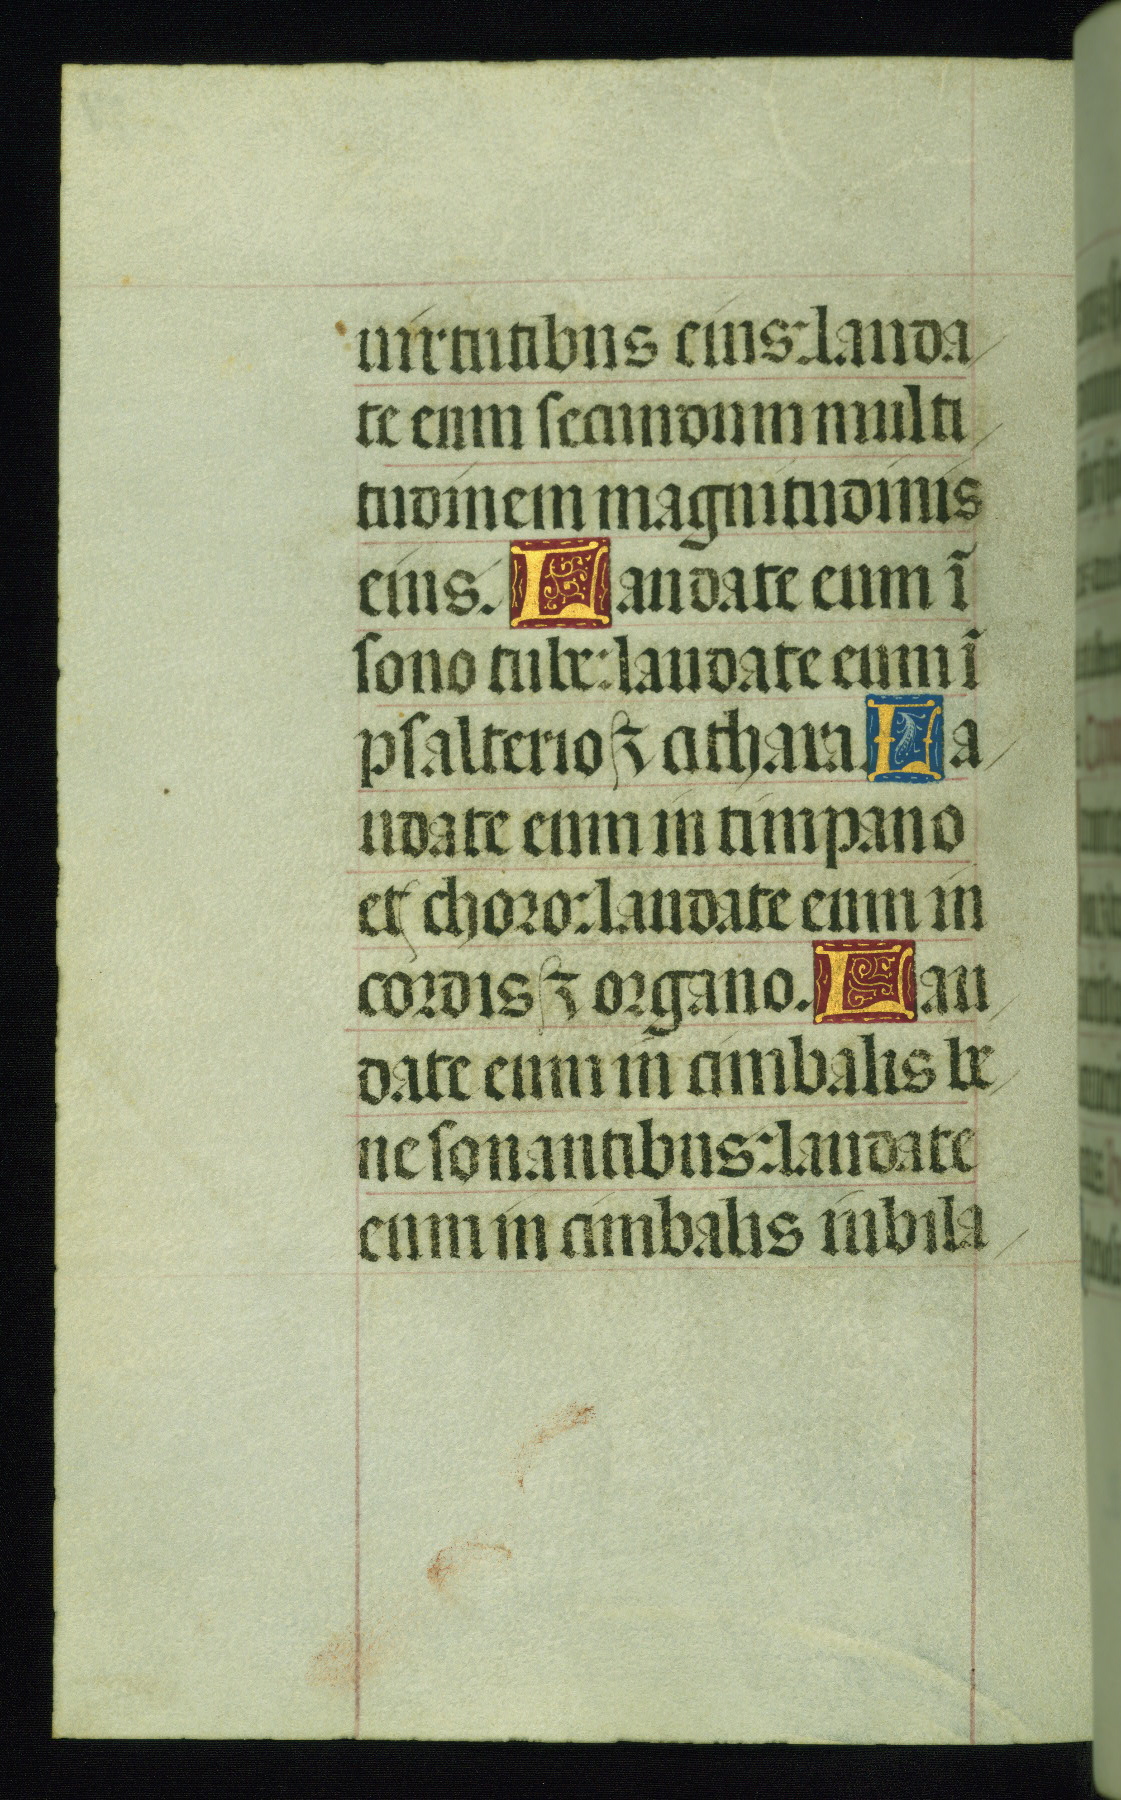 uirtutibus eius: lauda
te eum secundum multi
tudinem magnitudinis
eius. Laudate eum ī
sono tube: laudate eum ī
psalterio ⁊ cithara. La
udate eum in timpano
et choro: laudate eum in
cordis ⁊ organo. Lau
date eum in cimbalis be
ne sonantibus: laudate
eum in cimbalis iubila